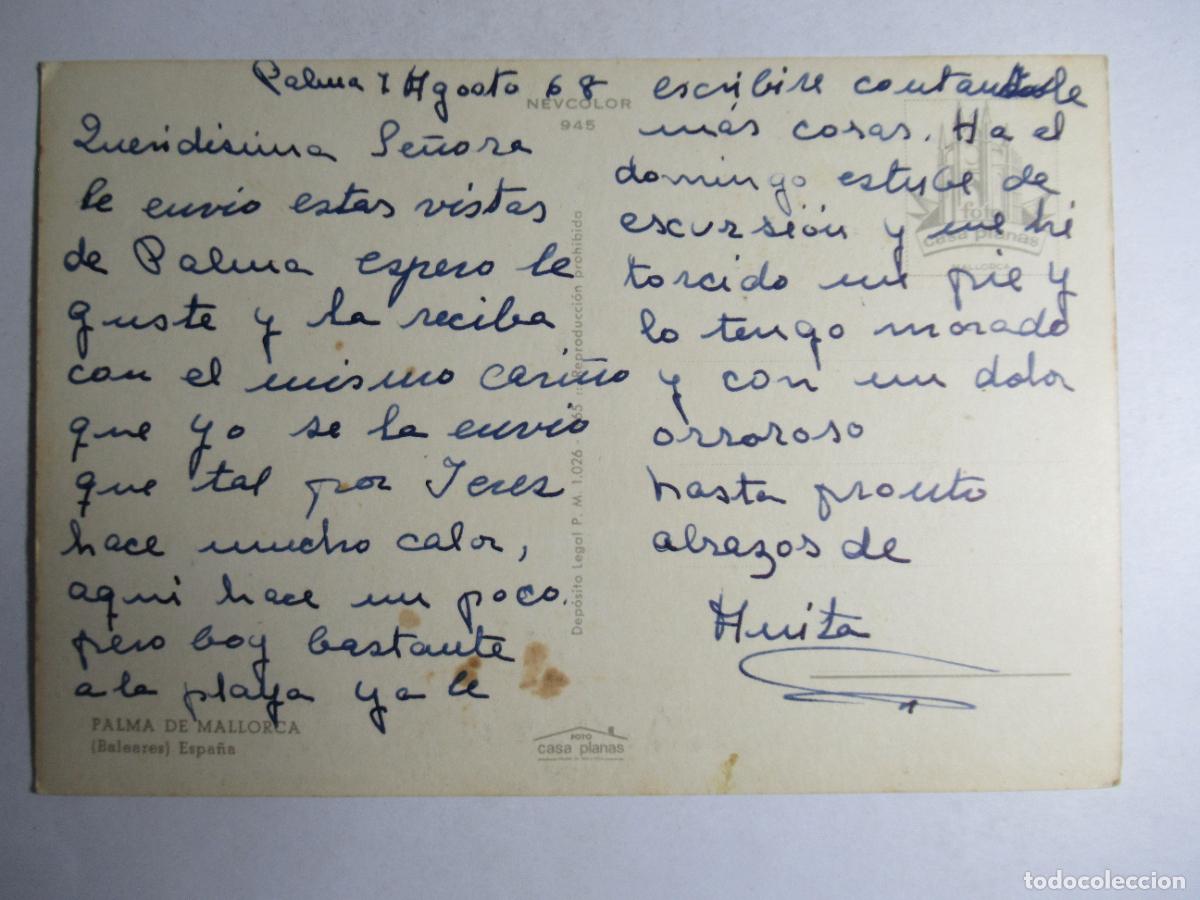 Palma 7 Agosto 68
Queridisima Señora
le envio estas vistas
de Palma espero le
guste y la reciba
con el mismo cariño
que yo se la envio
que tal por Jerez
hace mucho calor,
aqui hace un poco.
pero boy bastante
a la playa ya le
escribire contandole
más cosas. Ha el
domingo estube de
escursión y me hé
torcido un pie y
lo tengo morado
y con un dolor
orroroso
hasta pronto
abrazos de
Anita
NEVCOLOR
945
Depósito Legal P. M. 1.026 - 1965 Reproducción prohibida
foto
casa planas
MALLORCA
PALMA DE MALLORCA
(Baleares) España
FOTO
casa planas
todocoleccion